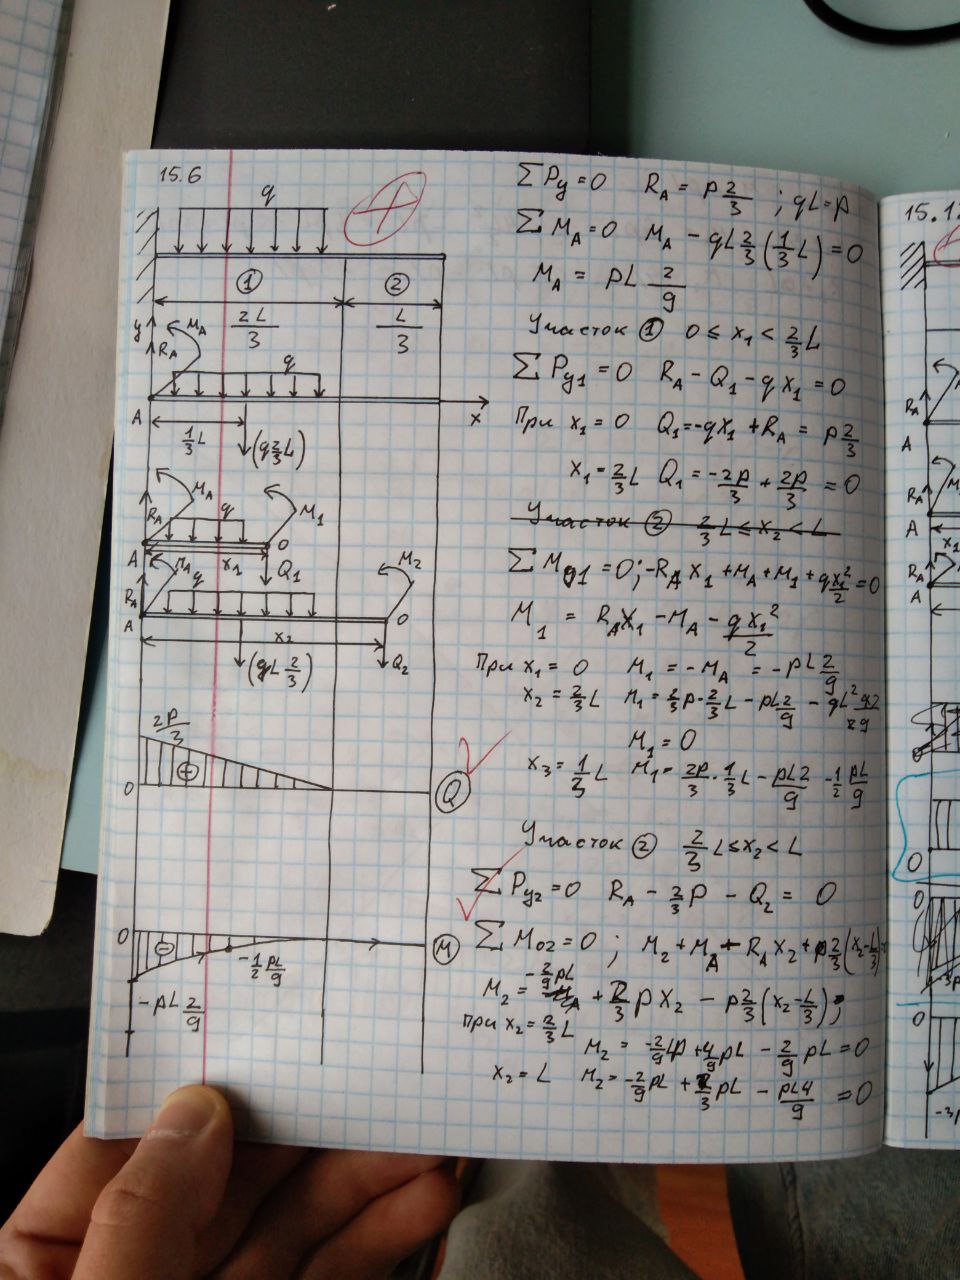 15.6
q
① ②
2L/3 L/3
y M_A
R_A q
A x
1/3 L (q 2/3 L)
M_A M_1
R_A q
A x_1 Q_1 O
M_A q M_2
R_A O
A x_2
(qL 2/3) Q_2
2P/3
⊕
0 Q
0 ⊖ M
-1/2 pL/9
-pL 2/9
ΣPy = 0 R_A = P 2/3 ; qL = P
ΣM_A = 0 M_A - qL 2/3 (1/3 L) = 0
M_A = pL 2/9
Участок ① 0 ≤ x_1 < 2/3 L
ΣPy1 = 0 R_A - Q_1 - q x_1 = 0
При x_1 = 0 Q_1 = -qx_1 + R_A = P 2/3
x_1 = 2/3 L Q_1 = -2P/3 + 2P/3 = 0
Участок ② 2/3 L ≤ x_2 < L
ΣM_01 = 0; -R_A x_1 + M_A + M_1 + q x_1²/2 = 0
M_1 = R_A x_1 - M_A - q x_1²/2
При x_1 = 0 M_1 = -M_A = -pL 2/9
x_2 = 2/3 L M_1 = 2/3 P · 2/3 L - pL 2/9 - qL²
M_1 = 0
x_3 = 1/3 L M_1 = 2P/3 · 1/3 L - pL2/9 - 1/2 pL/9
Участок ② 2/3 L ≤ x_2 < L
ΣPy2 = 0 R_A - 2/3 P - Q_2 = 0
ΣM_02 = 0 ; M_2 + M_A - R_A x_2 + p 2/3 (x_2 - L/3)
M_2 = -2/9 pL + 2/3 p x_2 - p 2/3 (x_2 - L/3);
При x_2 = 2/3 L
M_2 = -2/9 Lp + 4/9 pL - 2/9 pL = 0
x_2 = L M_2 = -2/9 pL + 2/3 pL - pL4/9 = 0
15.1
R_A
A
R_A
A
x_1
R_A
A
0
0
0
-3p